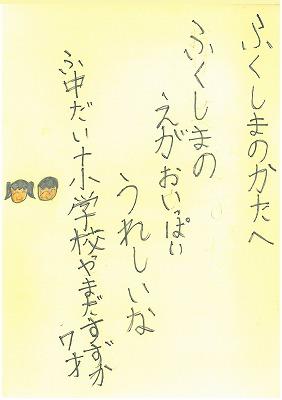 ふくしまのかたへ
ふくしまの
えがおいっぱい
うれしいな
ふ中だい十小学校やまだすずか
7才